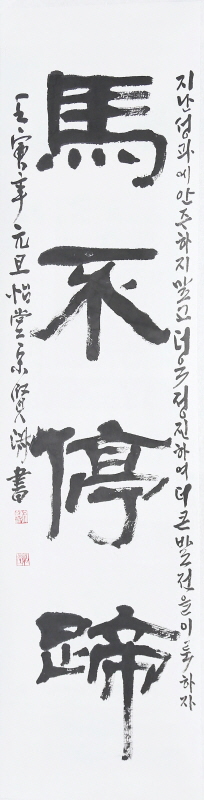 지난 성과에 안주하지 말고 더욱 정진하여 더 큰 발전을 이룩하자
馬不停蹄
壬寅年 元旦 怡堂 宗賢 書